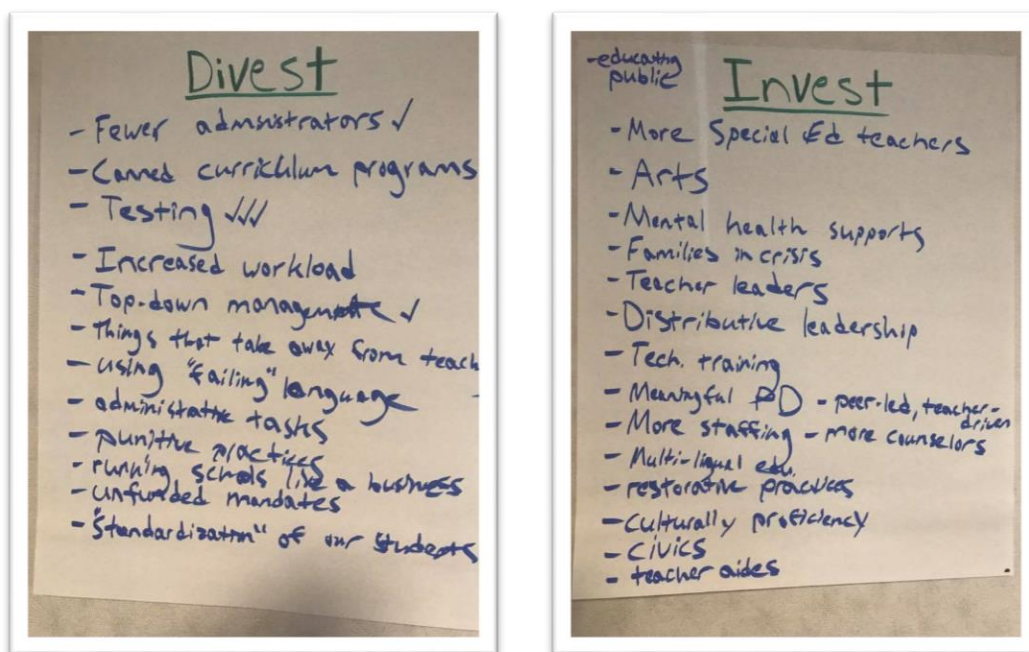 Divest
- Fewer administrators ✓
- Canned curriculum programs
- Testing ✓✓✓
- Increased workload
- Top-down management ✓
- Things that take away from teach
- using "failing" language
- administrative tasks
- punitive practices
- running schols like a business
- unfunded mandates
- "Standardization" of our students
-educating
public
Invest
- More Special Ed teachers
- Arts
- Mental health supports
- Families in crisis
- Teacher leaders
- Distributive leadership
- Tech. training
- Meaningful PD - peer-led, teacher-
driven
- More staffing - more counselors
- Multi-ligual edu.
- restorative practices
- culturally proficiency
- civics
- teacher aides